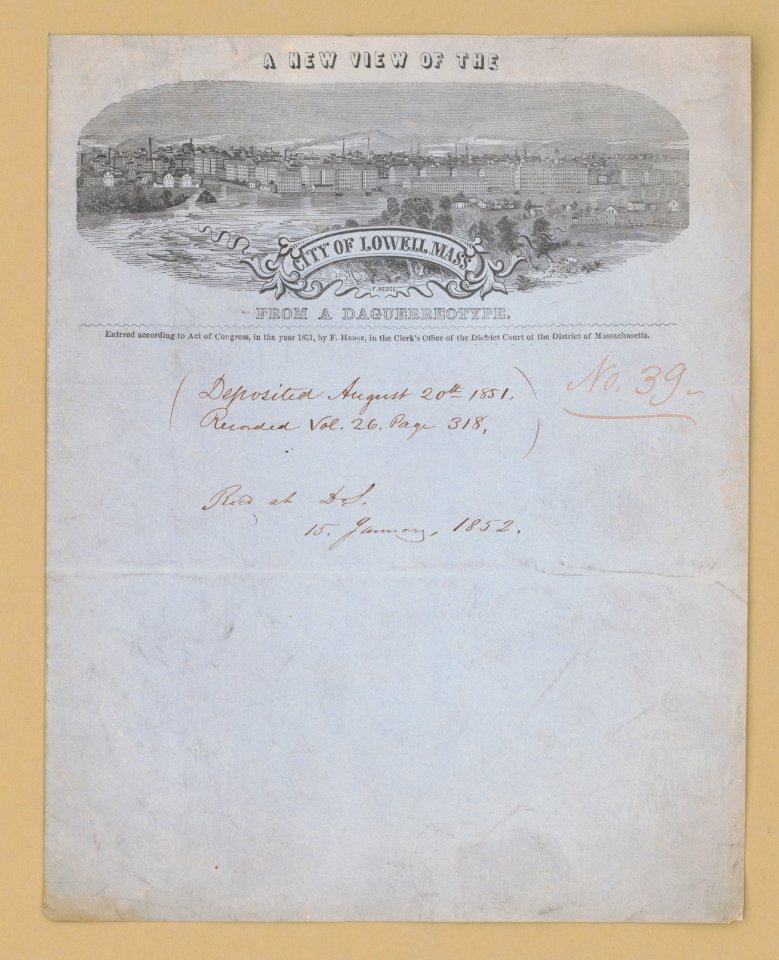 A NEW VIEW OF THE
CITY OF LOWELL, MASS.
F. HEDGE
FROM A DAGUERREOTYPE.
Entered according to Act of Congress, in the year 1851, by F. HEDGE, in the Clerk's Office of the District Court of the District of Massachusetts.
No. 39.
(Deposited August 20th 1851.
Recorded Vol. 26. Page 318,)
Recd at D.S.
15. January, 1852.